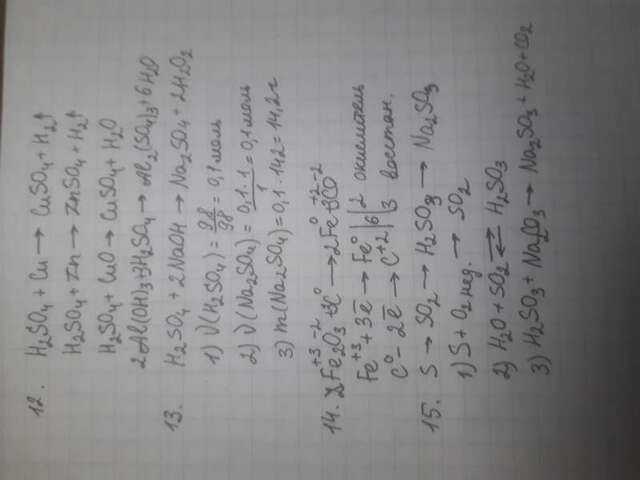 12. H₂SO₄ + Cu → CuSO₄ + H₂↑
H₂SO₄ + Zn → ZnSO₄ + H₂↑
H₂SO₄ + CuO → CuSO₄ + H₂O
2Al(OH)₃ + 3H₂SO₄ → Al₂(SO₄)₃ + 6H₂O
13. H₂SO₄ + 2NaOH → Na₂SO₄ + 2H₂O₂
1) ν(H₂SO₄) = 9,8/98 = 0,1 моль
2) ν(Na₂SO₄) = 0,1·1/1 = 0,1 моль
3) m(Na₂SO₄) = 0,1 · 142 = 14,2 г
14. Fe₂⁺³O₃⁻² + 3C⁰ → 2Fe⁰ + 3C⁺²O⁻²
Fe⁺³ + 3e̅ → Fe⁰ | 6 | 2 окислитель
C⁰ - 2e̅ → C⁺² | 3 восстан.
15. S → SO₂ → H₂SO₃ → Na₂SO₃
1) S + O₂ нед. → SO₂
2) H₂O + SO₂ ⇄ H₂SO₃
3) H₂SO₃ + Na₂CO₃ → Na₂SO₃ + H₂O + CO₂